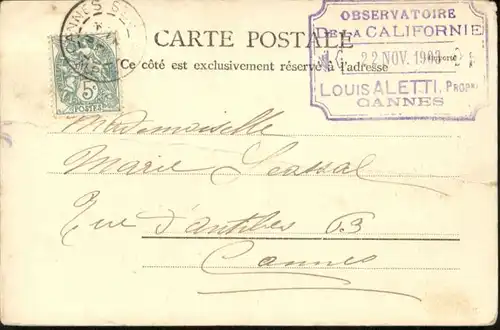 CANNES
5c
POSTES
CARTE POSTALE
Ce côté est exclusivement réservé à l'adresse
OBSERVATOIRE
DE LA CALIFORNIE
22 NOV.
LOUIS ALETTI, PROPRE
CANNES
Mademoiselle
Marie
Rue d'antibes 63
Cannes